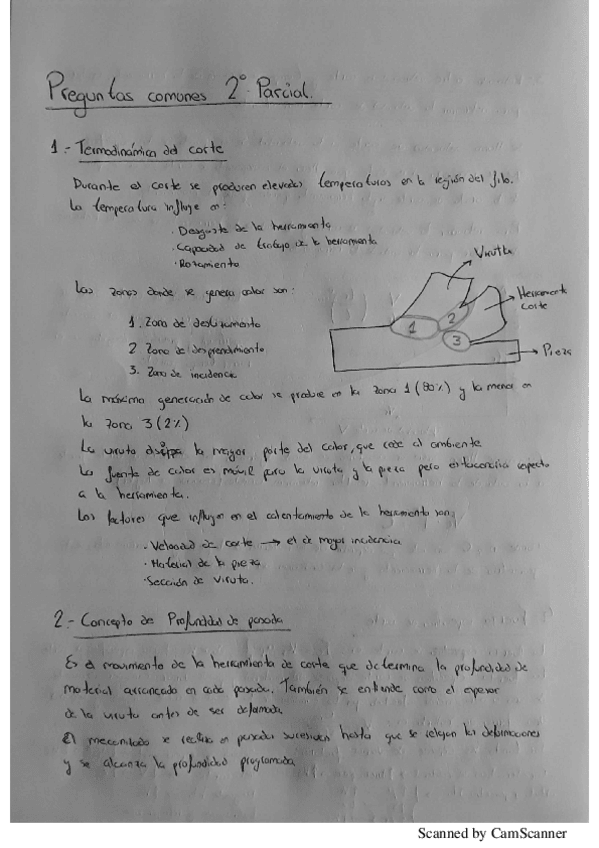 Preguntas comunes 2º Parcial.
1.- Termodinámica del corte
Durante el corte se producen elevadas temperaturas en la región del filo.
La temperatura influye en:
· Desgaste de la herramienta
· Capacidad de trabajo de la herramienta
· Rozamiento
Las zonas donde se genera calor son:
1. Zona de deslizamiento
2 Zona de desprendimiento
3. Zona de incidencia
Viruta
Herramienta
corte
1
2
3
Pieza
La máxima generación de calor se produce en la zona 1 (80%) y la menor en
la zona 3 (2%)
La viruta disipa la mayor parte del calor, que cede al ambiente
La fuente de calor es móvil para la viruta y la pieza pero estacionaria respecto
a la herramienta.
Los factores que influyen en el calentamiento de la herramienta son;
· Velocidad de corte → el de mayor incidencia
· Material de la pieza
· Sección de viruta.
2.- Concepto de Profundidad de pasada
Es el movimiento de la herramienta de corte que determina la profundidad de
material arrancado en cada pasada. También se entiende como el espesor
de la viruta antes de ser deformada.
El mecanizado se realiza en pasadas sucesivas hasta que se relajan las deformaciones
y se alcanza la profundidad programada
Scanned by CamScanner